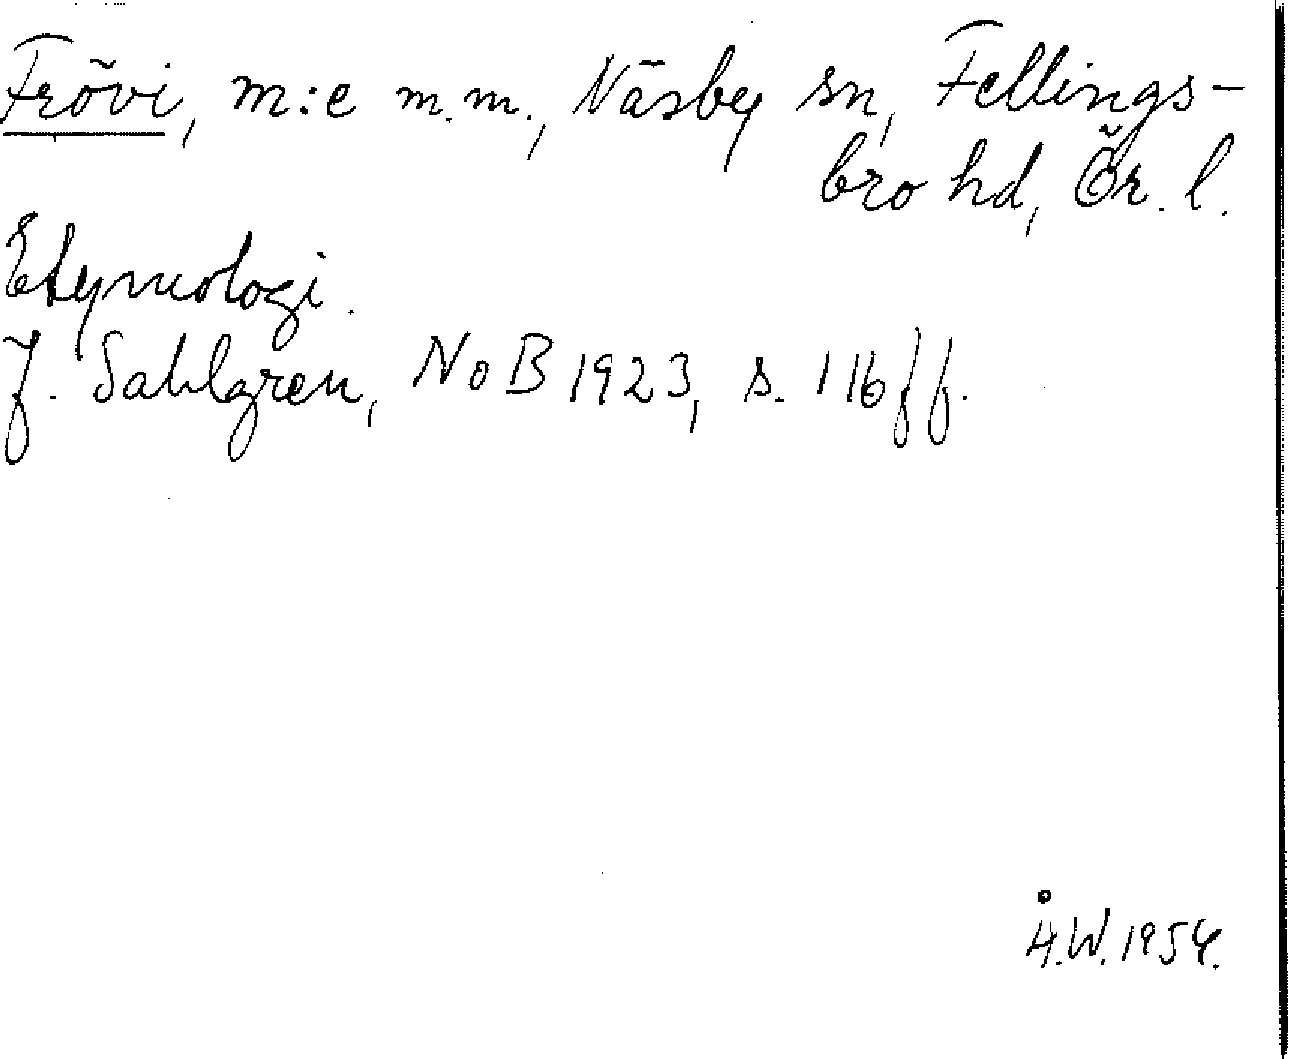 Frövi, m:e m.m., Näsby sn, Fellings-
bro hd, Ör. l.
Etymologi.
J. Sahlgren, NoB 1923, s. 116 ff.
Å.W. 1954.